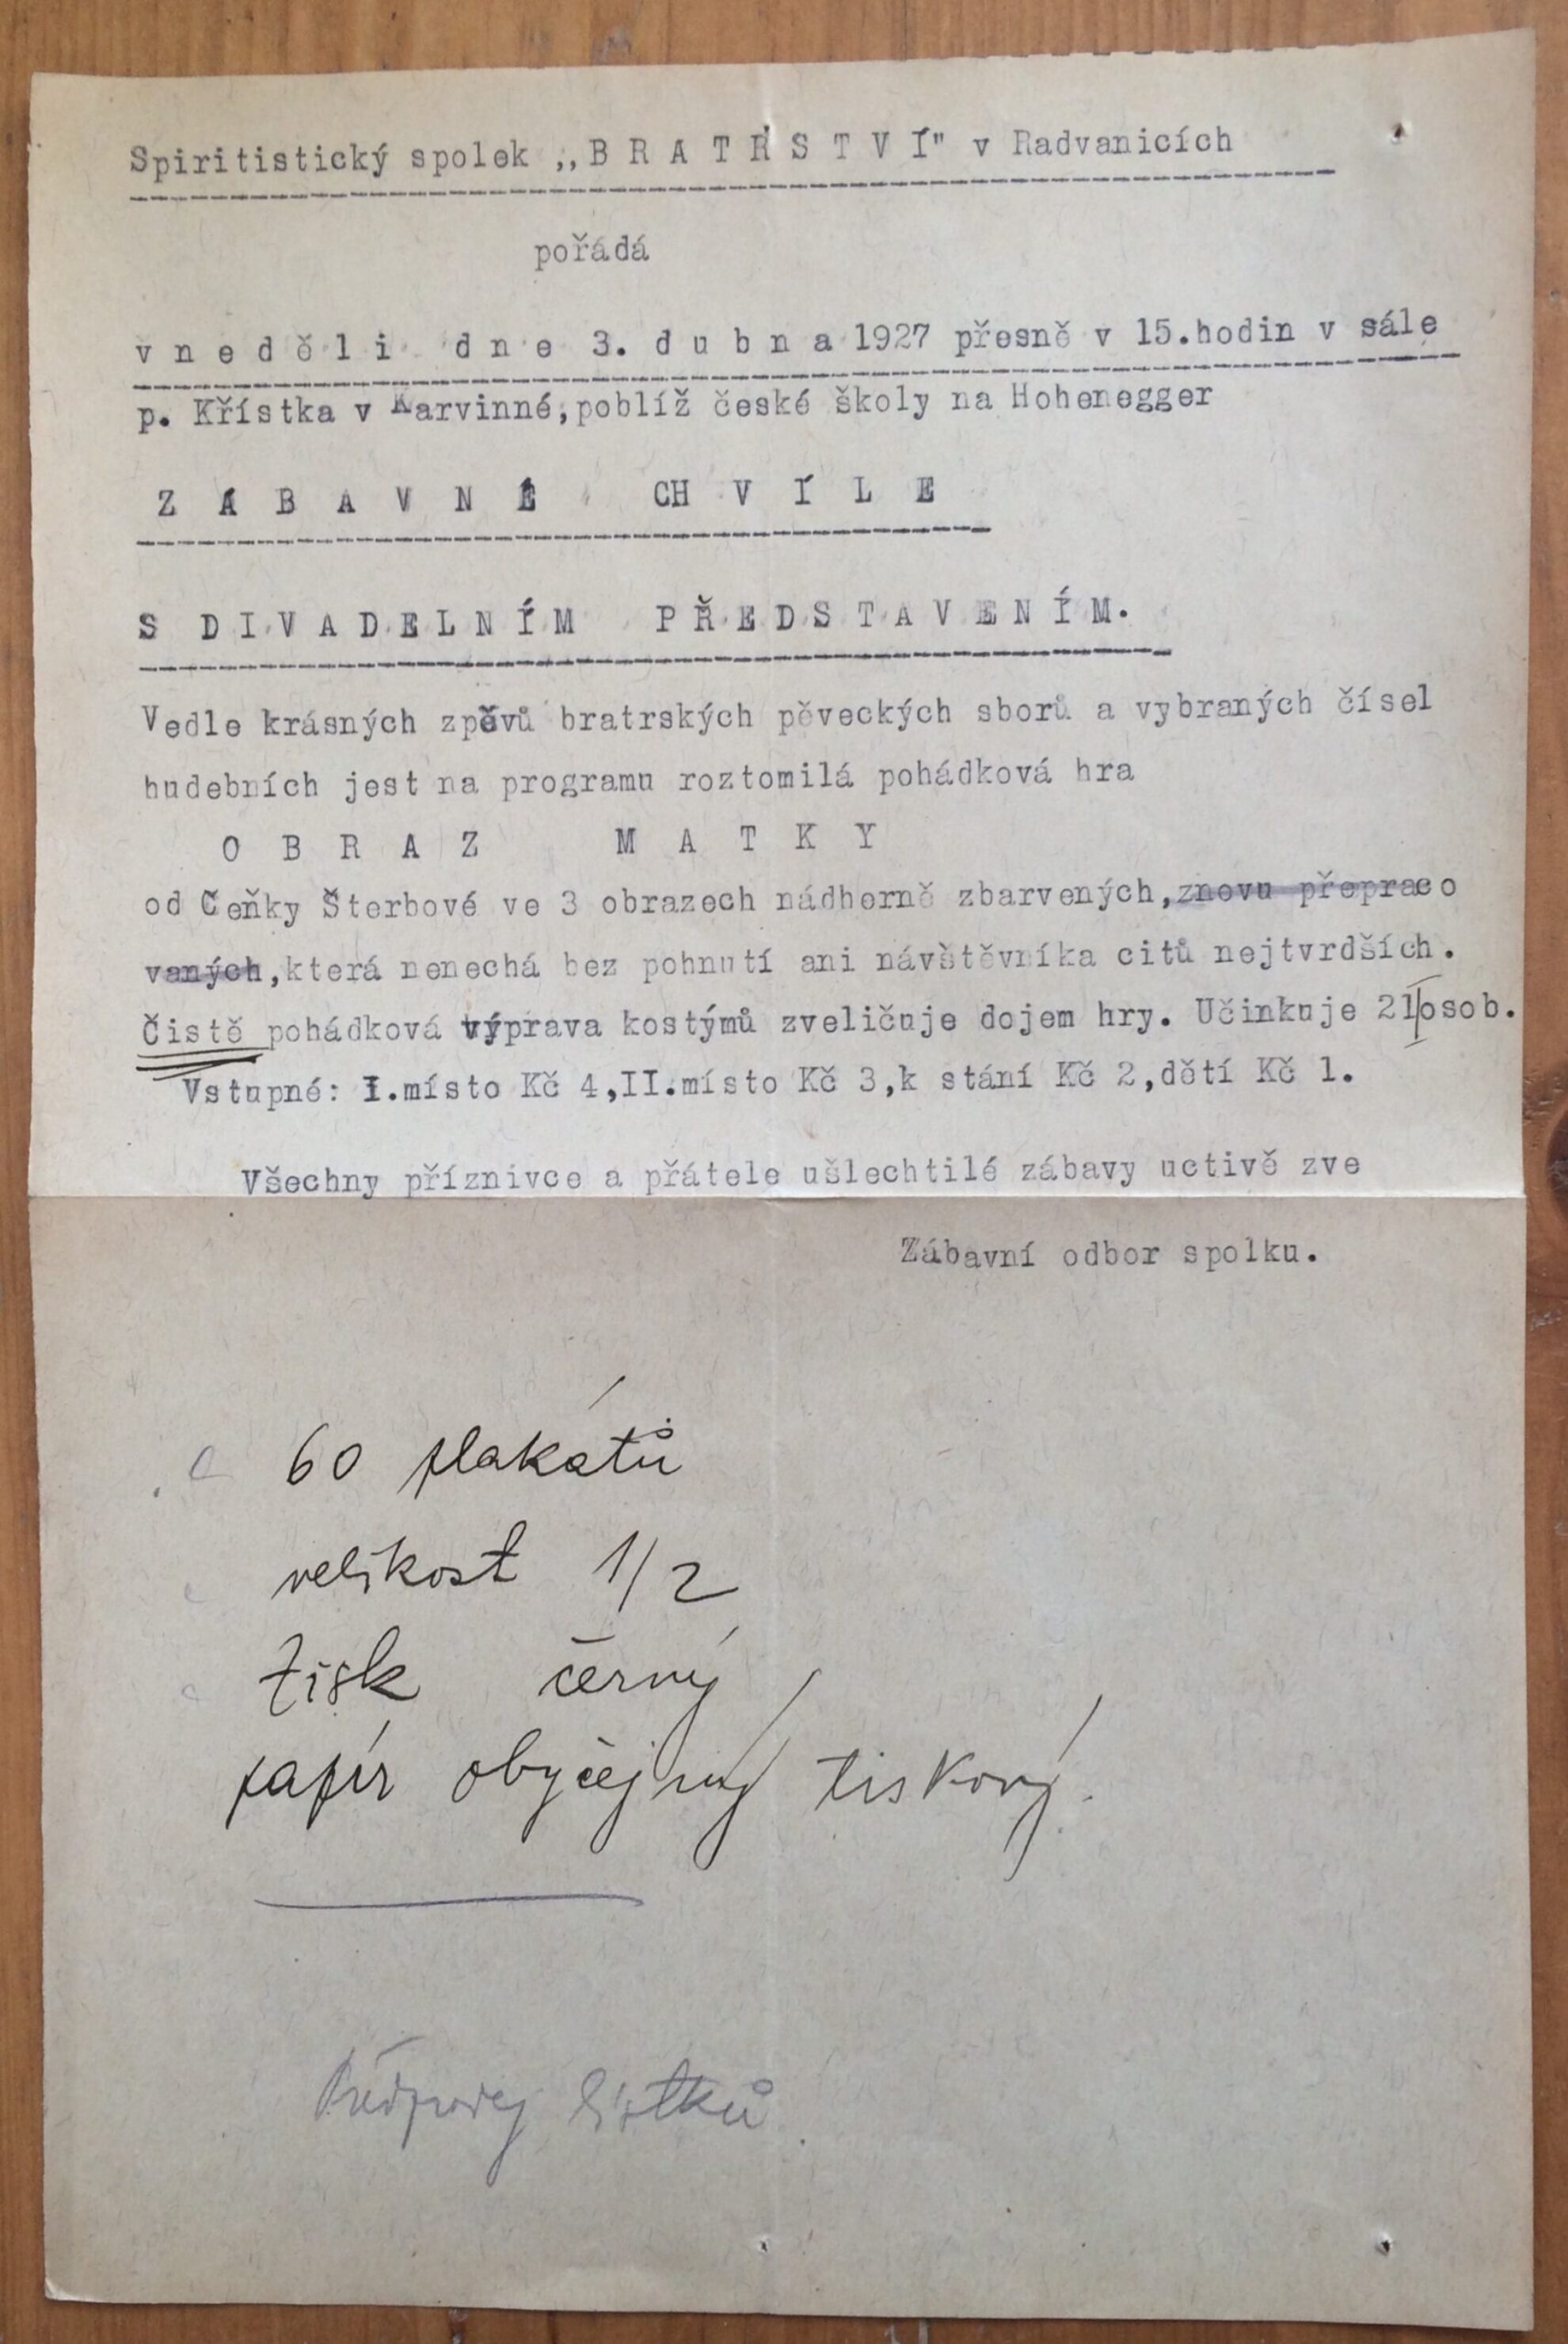 Spiritistický spolek „B R A T R S T V Í" v Radvanicích
pořádá
v n e d ě l i d n e 3. d u b n a 1927 přesně v 15.hodin v sále
p. Křístka v Karvinné,poblíž české školy na Hohenegger
Z Á B A V N É CH V Í L E
S D I V A D E L N Í M P Ř E D S T A V E N Í M.
Vedle krásných zpěvů bratrských pěveckých sborů a vybraných čísel
hudebních jest na programu roztomilá pohádková hra
O B R A Z M A T K Y
od Čeňky Šterbové ve 3 obrazech nádherně zbarvených,znovu přepraco
vaných,která nenechá bez pohnutí ani návštěvníka citů nejtvrdších.
Čistě pohádková výprava kostýmů zveličuje dojem hry. Učinkuje 21 osob.
Vstupné: I.místo Kč 4,II.místo Kč 3,k stání Kč 2,dětí Kč 1.
Všechny příznivce a přátele ušlechtilé zábavy uctivě zve
Zábavní odbor spolku.
60 plakátů
velikost 1/2
tisk černý
papír obyčejný tiskový.
Předprodej lístků